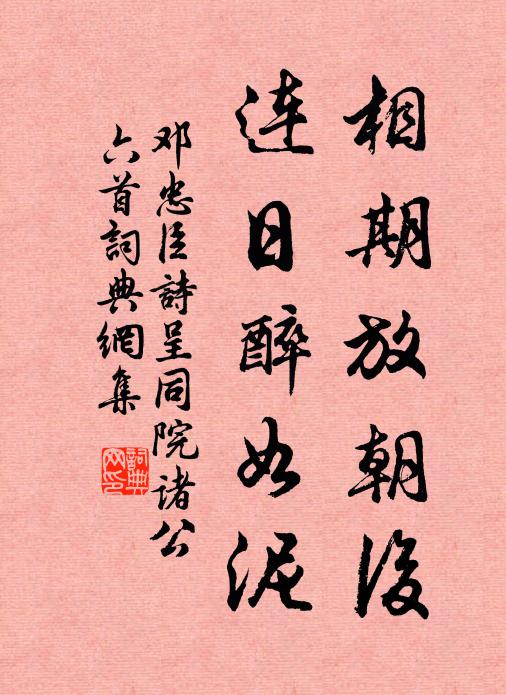 相期放朝後
连日醉如泥
邓忠臣詩呈同院诸公
六首詞典網集
詞典网印